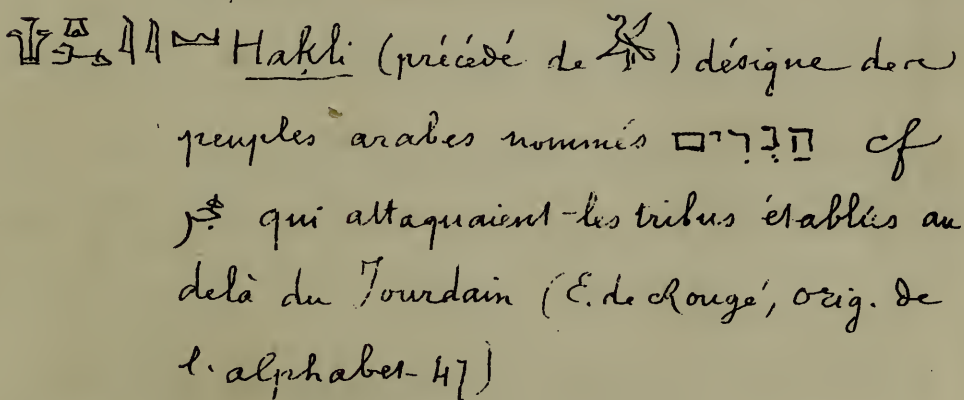 Hakli (précédé de ) désigne des
peuples arabes nommés הַגְרִים cf
qui attaquaient les tribus établies au
delà du Jourdain (E. de Rougé, orig. de
l. alphabet 47)